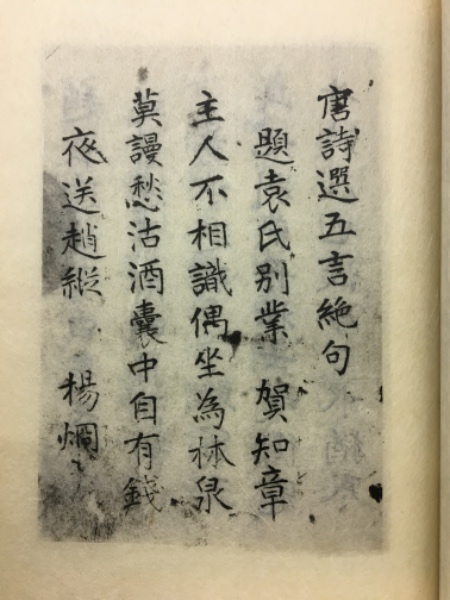 唐詩選五言絶句
題袁氏別業 賀知章
主人不相識偶坐為林泉
莫謾愁沽酒囊中自有錢
夜送趙縱 楊烱